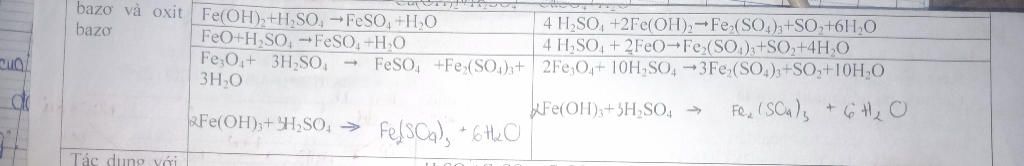 bazơ và oxit
bazơ
Fe(OH)₂+H₂SO₄ →FeSO₄+H₂O
4 H₂SO₄ +2Fe(OH)₂→Fe₂(SO₄)₃+SO₂+6H₂O
FeO+H₂SO₄ →FeSO₄+H₂O
4 H₂SO₄ + 2FeO→Fe₂(SO₄)₃+SO₂+4H₂O
Fe₃O₄+ 3H₂SO₄ → FeSO₄ +Fe₂(SO₄)₃+
3H₂O
2Fe₃O₄+ 10H₂SO₄ →3Fe₂(SO₄)₃+SO₂+10H₂O
2Fe(OH)₃+3H₂SO₄ → Fe₂(SO₄)₃ + 6H₂O
2Fe(OH)₃+3H₂SO₄ → Fe₂(SO₄)₃ + 6H₂O
Tác dụng với